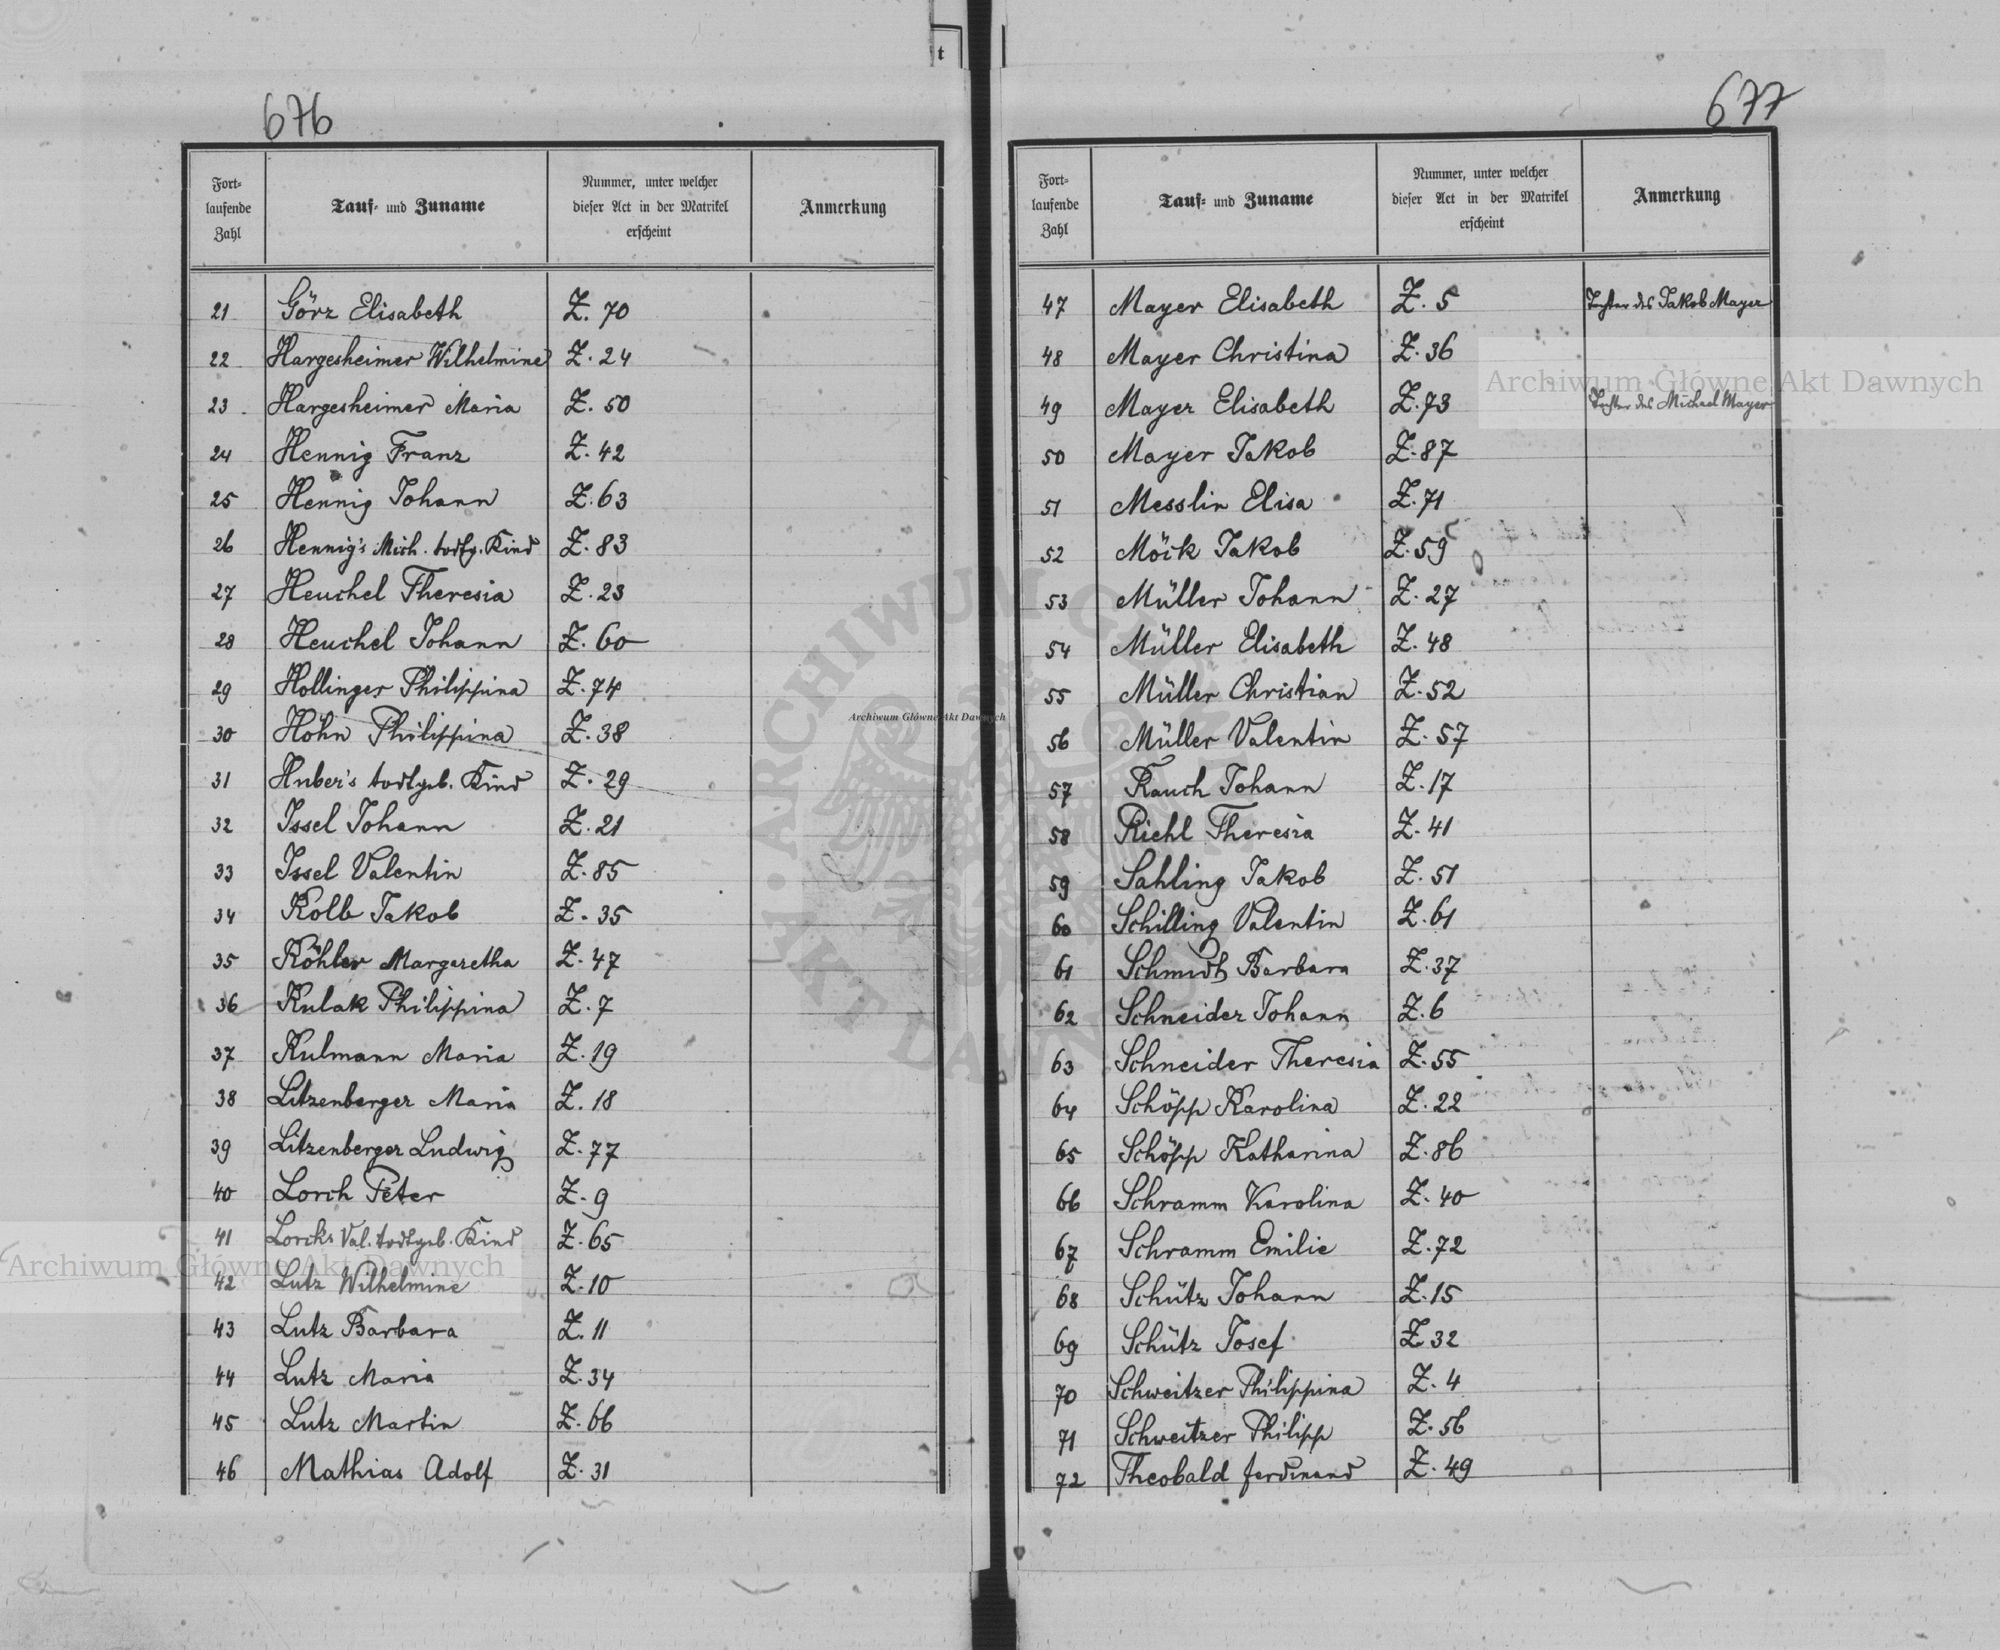 t
676
Fort-
laufende
Zahl
Tauf- und Zuname
Nummer, unter welcher
dieser Act in der Matrikel
erscheint
Anmerkung
21 Görz Elisabeth Z. 70
22 Hargesheimer Wilhelmine Z. 24
23. Hargesheimer Maria Z. 50
24 Hennig Franz Z. 42
25 Hennig Johann Z. 63
26 Hennig's Mich. todtg. Kind Z. 83
27 Heuchel Theresia Z. 23
28 Heuchel Johann Z. 60
29 Hollinger Philippina Z. 74
30 Höhn Philippina Z. 38
31 Huber's todtgeb. Kind Z. 29
32 Issel Johann Z. 21
33 Issel Valentin Z. 85
34 Kolb Jakob Z. 35
35 Köhler Margaretha Z. 47
36 Kulak Philippina Z. 7
37 Kulmann Maria Z. 19
38 Litzenberger Maria Z. 18
39 Litzenberger Ludwig Z. 77
40 Lorch Peter Z. 9
41 Lorch's Val. todtgeb. Kind Z. 65
42 Lutz Wilhelmine Z. 10
43 Lutz Barbara Z. 11
44 Lutz Maria Z. 34
45 Lutz Martin Z. 66
46 Mathias Adolf Z. 31
677
Fort-
laufende
Zahl
Tauf- und Zuname
Nummer, unter welcher
dieser Act in der Matrikel
erscheint
Anmerkung
47 Mayer Elisabeth Z. 5 Tochter des Jakob Mayer
48 Mayer Christina Z. 36
49 Mayer Elisabeth Z. 73 Tochter des Michael Mayer
50 Mayer Jakob Z. 87
51 Messlin Elisa Z. 71
52 Möck Jakob Z. 59
53 Müller Johann Z. 27
54 Müller Elisabeth Z. 48
55 Müller Christian Z. 52
56 Müller Valentin Z. 57
57 Rauch Johann Z. 17
58 Riehl Theresia Z. 41
59 Sahling Jakob Z. 51
60 Schilling Valentin Z. 61
61 Schmidt Barbara Z. 37
62 Schneider Johann Z. 6
63 Schneider Theresia Z. 55
64 Schöpp Karolina Z. 22
65 Schöpp Katharina Z. 86
66 Schramm Karolina Z. 40
67 Schramm Emilie Z. 72
68 Schütz Johann Z. 15
69 Schütz Josef Z 32
70 Schweitzer Philippina Z. 4
71 Schweitzer Philipp Z. 56
72 Theobald Ferdinand Z. 49
Archiwum Główne Akt Dawnych
Archiwum Główne Akt Dawnych
Archiwum Główne Akt Dawnych
ARCHIWUM GŁÓWNE AKT DAWNYCH